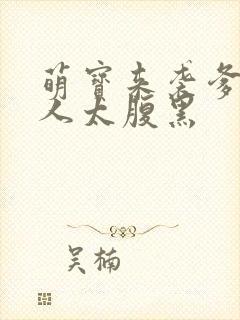 萌宝来袭爹
人太腹黑
吴楠